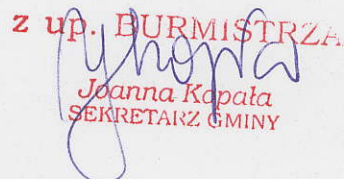 z up. BURMISTRZA
Joanna Kapała
SEKRETARZ GMINY